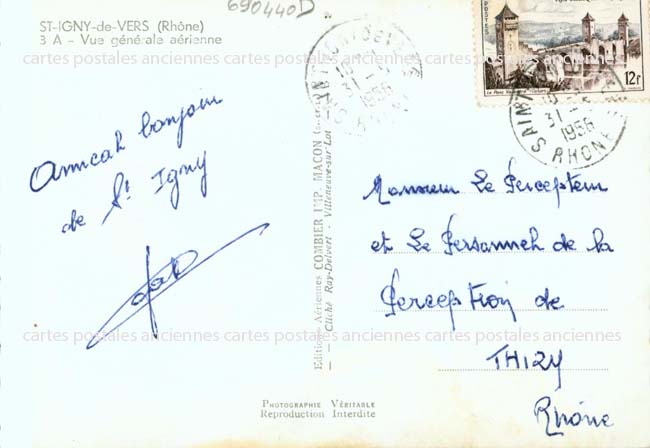 690440D
ST-IGNY-de-VERS (Rhône)
3 A - Vue générale aérienne
cartes postales anciennes cartes postales anciennes cartes postales anciennes
Amical bonjour
de St Igny
Editions Aériennes COMBIER IMP. MACON
Cliché Ray-Delvert - Villeneuve-sur-Lot
31
1956
RHONE
POSTES
12f
31
1956
RHONE
Monsieur Le Percepteur
et Le Personnel de la
Perception de
THIZY
Rhône
cartes postales anciennes cartes postales anciennes cartes postales anciennes
PHOTOGRAPHIE VÉRITABLE
Reproduction Interdite